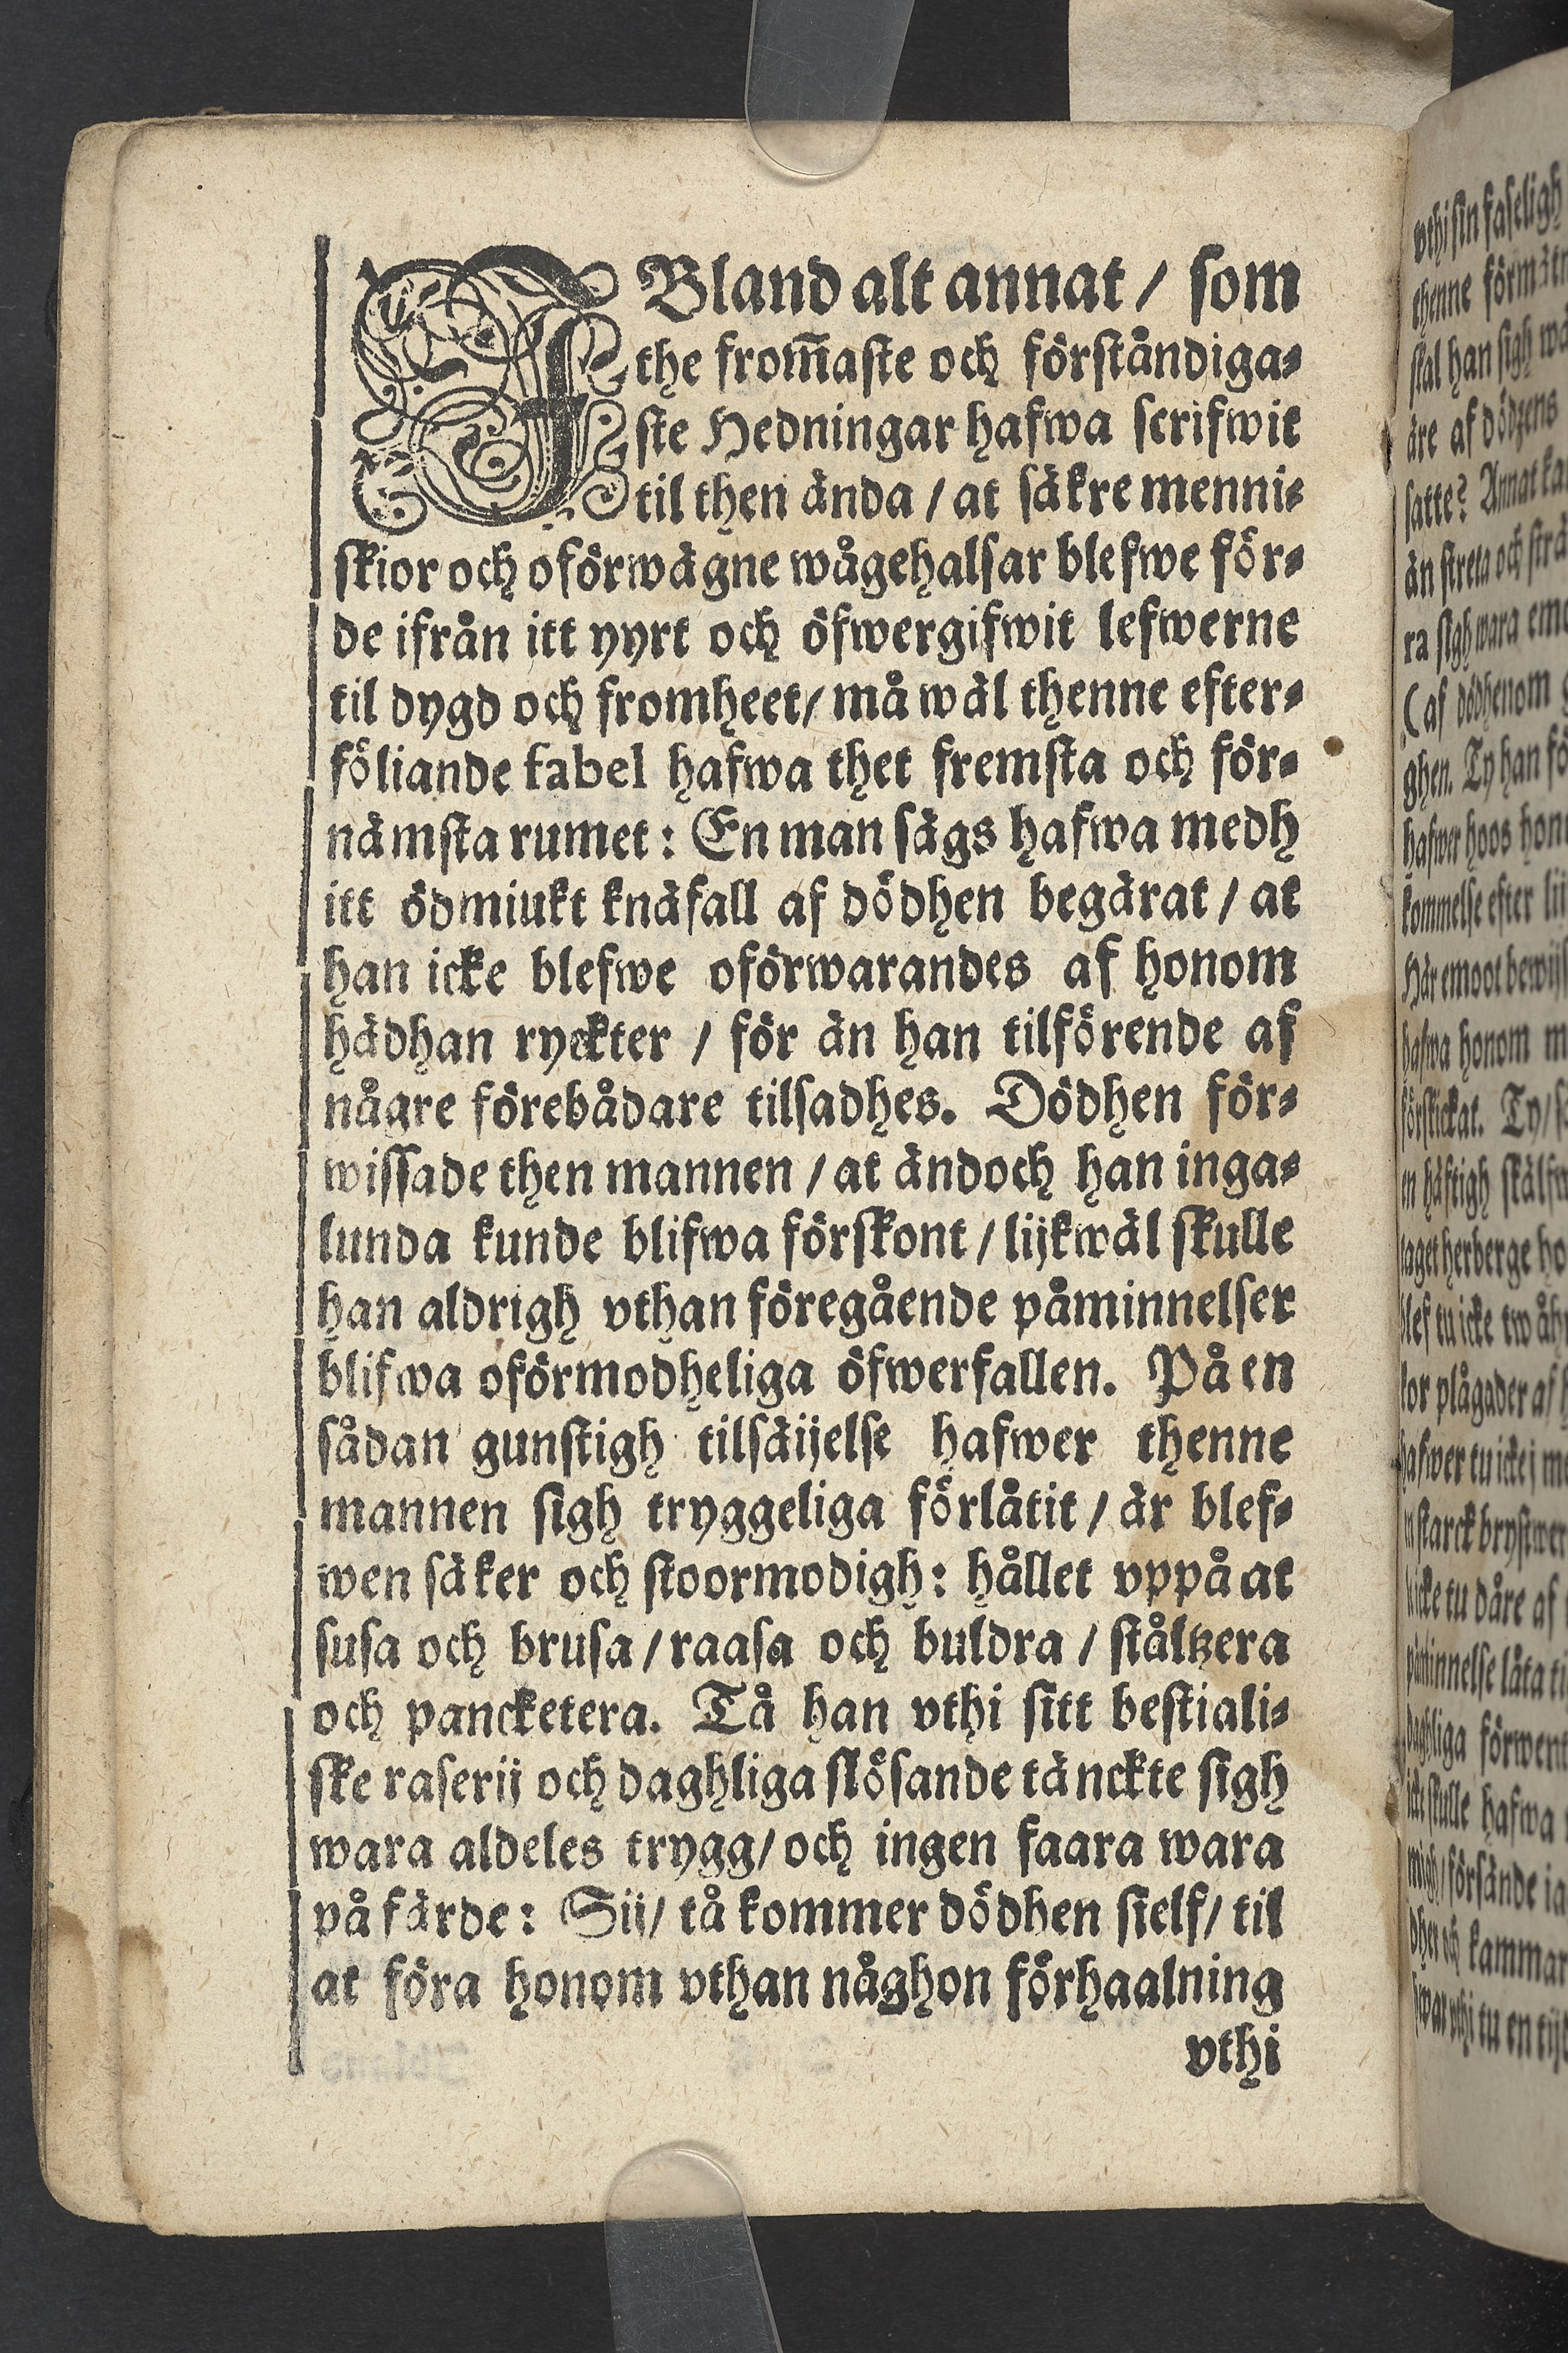 IBland alt annat / som
the from̃aste och förståndiga-
ste Hedningar hafwa scrifwit
til then ända / at säkre menni-
skior och oförwägne wågehalsar blefwe för-
de ifrån itt yyrt och öfwergifwit lefwerne
til dygd och fromheet / må wäl thenne efter-
föliande fabel hafwa thet fremsta och för-
nämsta rumet : En man sägs hafwa medh
itt ödmiukt knäfall af dödhen begärat / at
han icke blefwe oförwarandes af honom
hädhan ryckter / för än han tilförende af
någre förebådare tilsadhes. Dödhen för-
wissade then mannen / at ändoch han inga-
lunda kunde blifwa förskont / lijkwäl skulle
han aldrigh vthan föregående påminnelser
blifwa oförmodheliga öfwerfallen. På en
sådan gunstigh tilsäijelse hafwer thenne
mannen sigh tryggeliga förlåtit / är blef-
wen säker och stoormodigh : hållet vppå at
susa och brusa / raasa och buldra / ståltzera
och pancketera. Tå han vthi sitt bestiali-
ske raserij och daghliga slösande tänckte sigh
wara aldeles trygg / och ingen faara wara
på färde : Sij / tå kommer dödhen sielf / til
at föra honom vthan någhon förhaalning
vthi
vthi sin faseligh
thenne
skal han sigh
äre af dödzens
satte? Annat
än streta och
ra sigh wara
(af dödhenom
ghen. Ty han
hafwer hoos
kommelse efter
Här emoot
hafwa honom
förskickat. Ty /
en häftigh
taget herberge
blef tu icke tw
lor plågader af
hafwer tu icke j
en starck
icke tu dåre af
påminnelse låta
daghliga
icke skulle hafwa
migh / försände
dher och kammar
swar vthi tu en